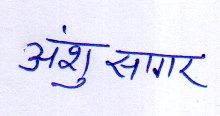 अंशु सागर